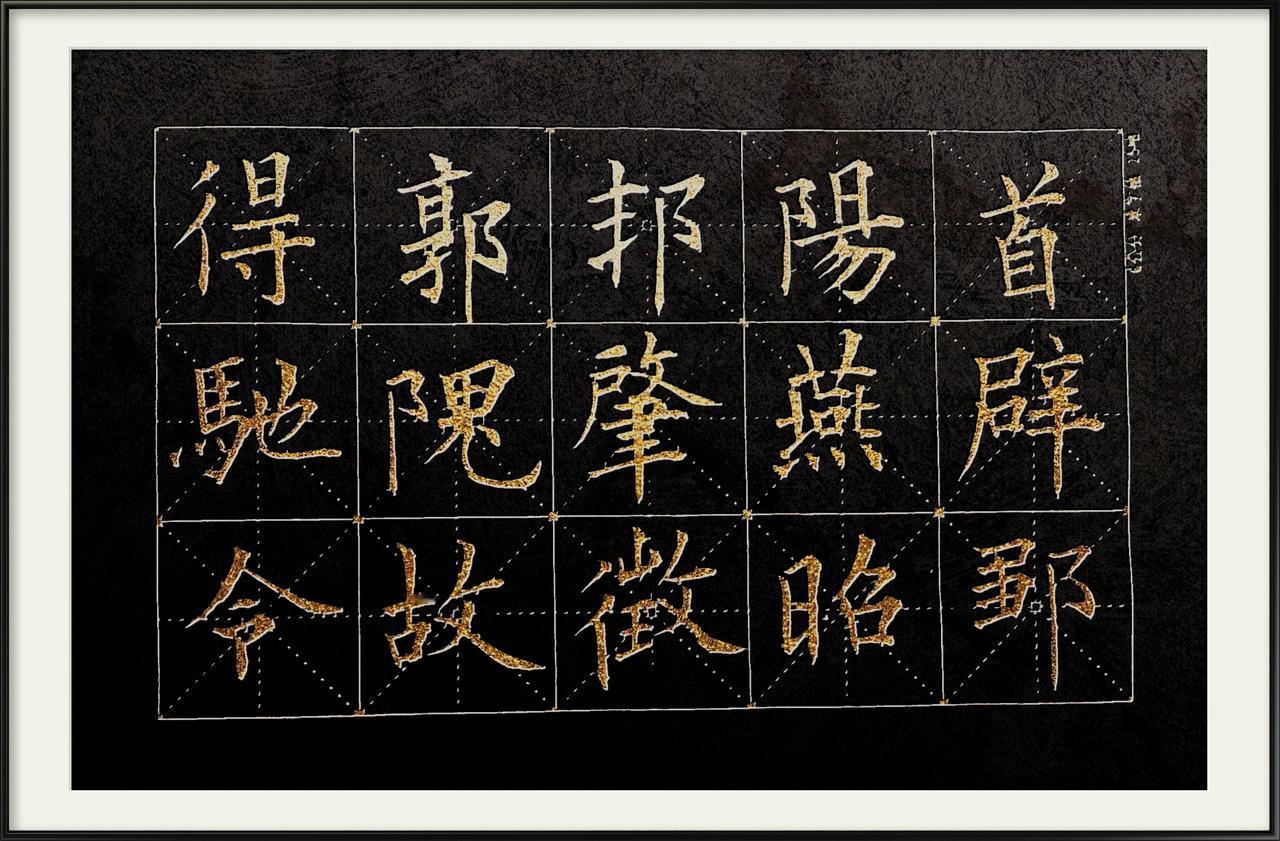 首辟鄒
陽燕昭
邦肇徵
郭隗故
得馳令